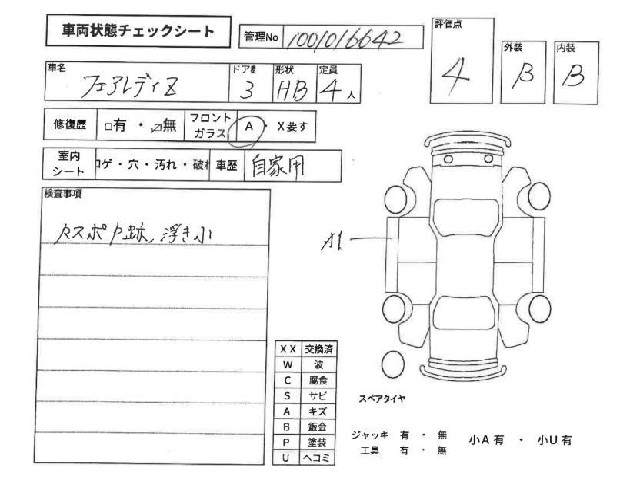 車両状態チェックシート
管理No 1001016642
評価点 4
外装 B
内装 B
車名 フェアレディZ
ドア数 3
形状 HB
定員 4人
修復歴 □有・☑無
フロントガラス A・X要す
室内シート コゲ・穴・汚れ・破れ
車歴 自家用
検査事項
浮き小
A1
XX 交換済
W 波
C 腐食
S サビ
A キズ
B 鈑金
P 塗装
U ヘコミ
スペアタイヤ
ジャッキ 有・無
工具 有・無
小A有・小U有